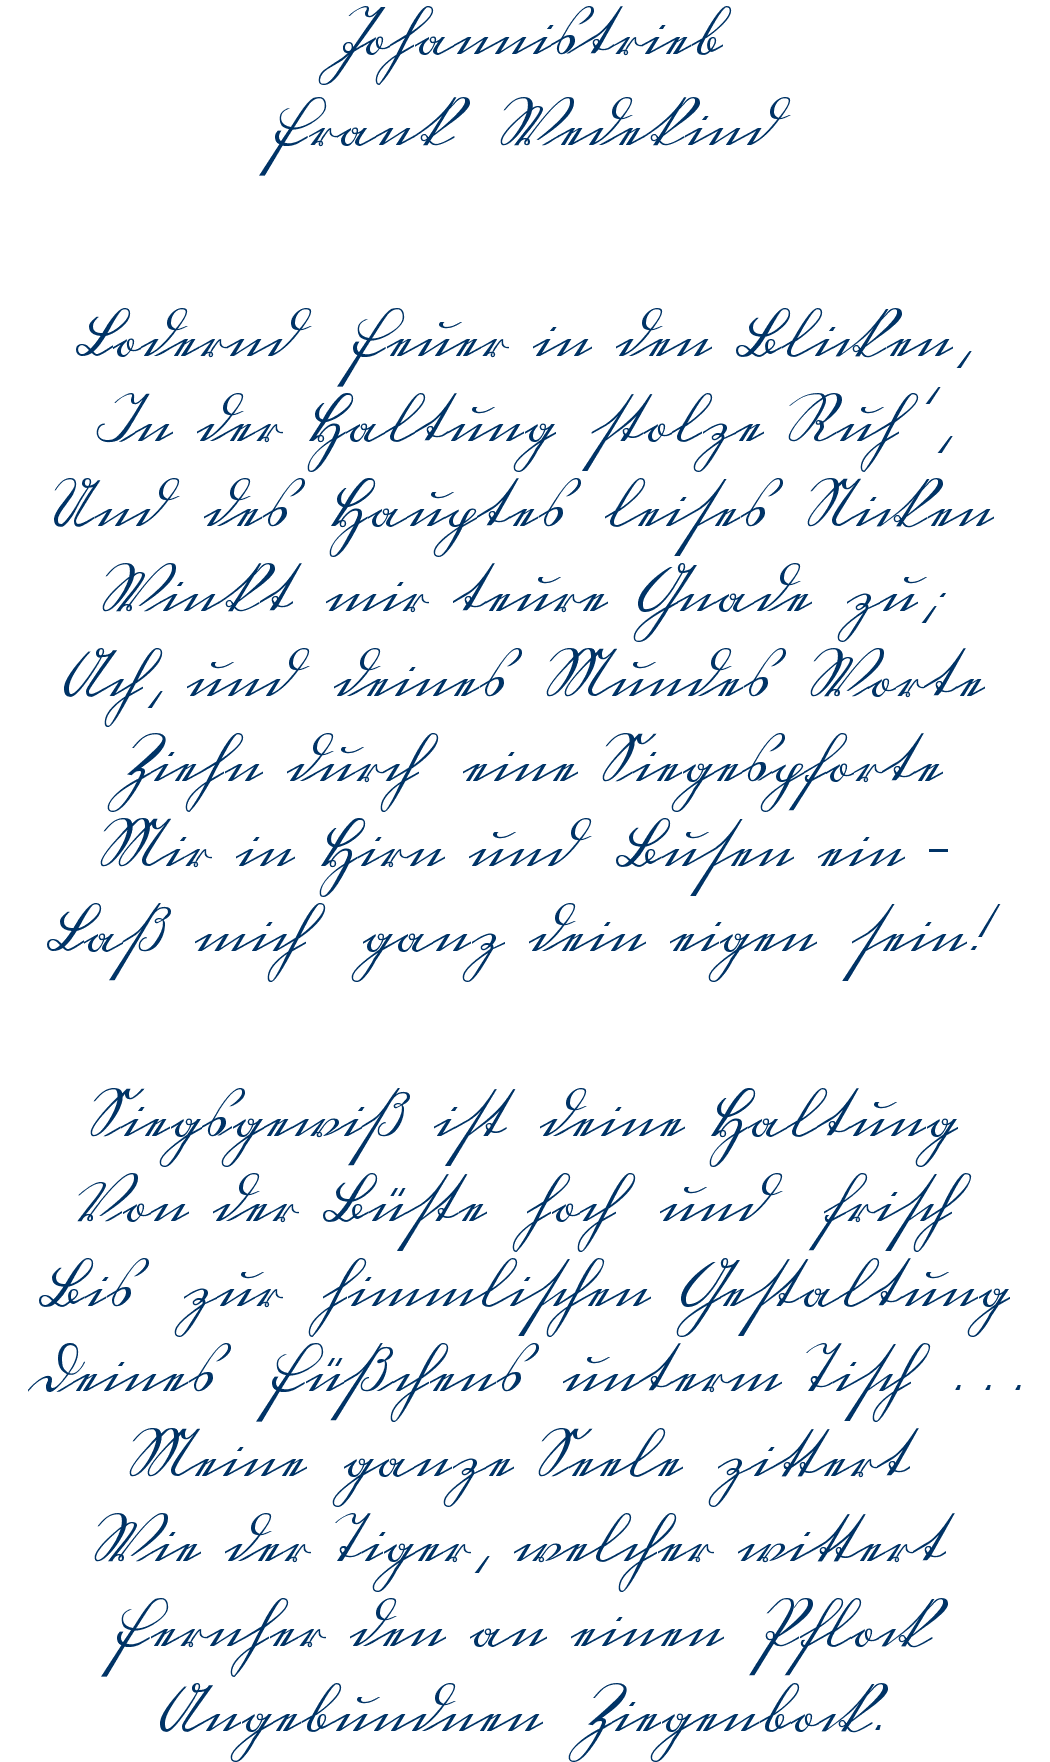 Johannistrieb
Frank Wedekind
Lodernd Feuer in den Blicken,
In der Haltung stolze Ruh',
Und des Hauptes leises Nicken
Winkt mir teure Gnade zu;
Ach, und deines Mundes Worte
Ziehn durch eine Siegespforte
Mir in Hirn und Busen ein –
Laß mich ganz dein eigen sein!
Siegsgewiß ist deine Haltung
Von der Büste hoch und frisch
Bis zur himmlischen Gestaltung
Deines Füßchens unterm Tisch ...
Meine ganze Seele zittert
Wie der Tiger, welcher wittert
Fernher den an einen Pflock
Angebundnen Ziegenbock.